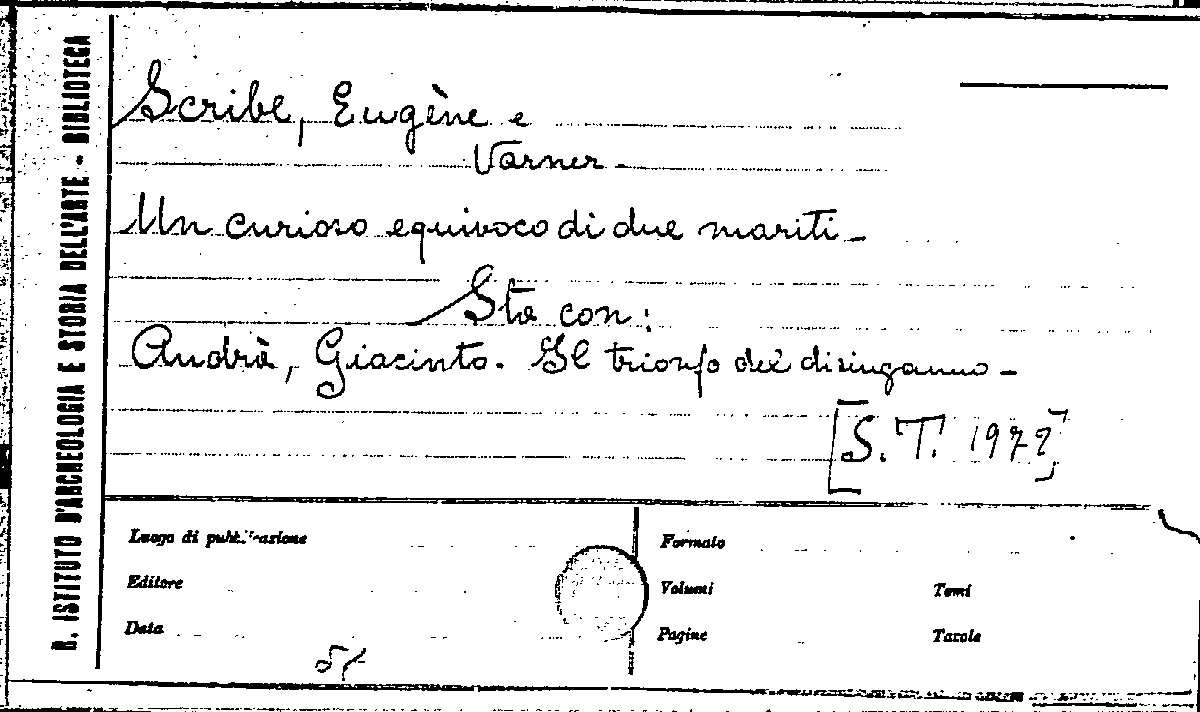 R. ISTITUTO D'ARCHEOLOGIA E STORIA DELL'ARTE - BIBLIOTECA
Scribe, Eugène e
Varner -
Un curioso equivoco di due mariti -
Sta con:
Andrà, Giacinto. Il trionfo del disinganno -
[S.T. 1972]
Luogo di pubblicazione
Formato
Editore
Volumi
Tomi
Data
Pagine
Tavole